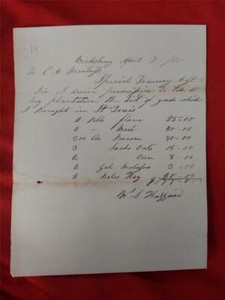 Vicksburg April 2
To C A Montross
Special Treasury Agt
Sir I desire permission to take
my plantation the list of goods which
I brought in St Louis
5 Bbls flour 55.00
2 " Meal 20.00
200 lbs Bacon 30.00
3 Sacks Oats 15.00
2 " Corn 8.00
5 Gals Molasses 5.00
5 Bales Hay
Wm S Hazzard